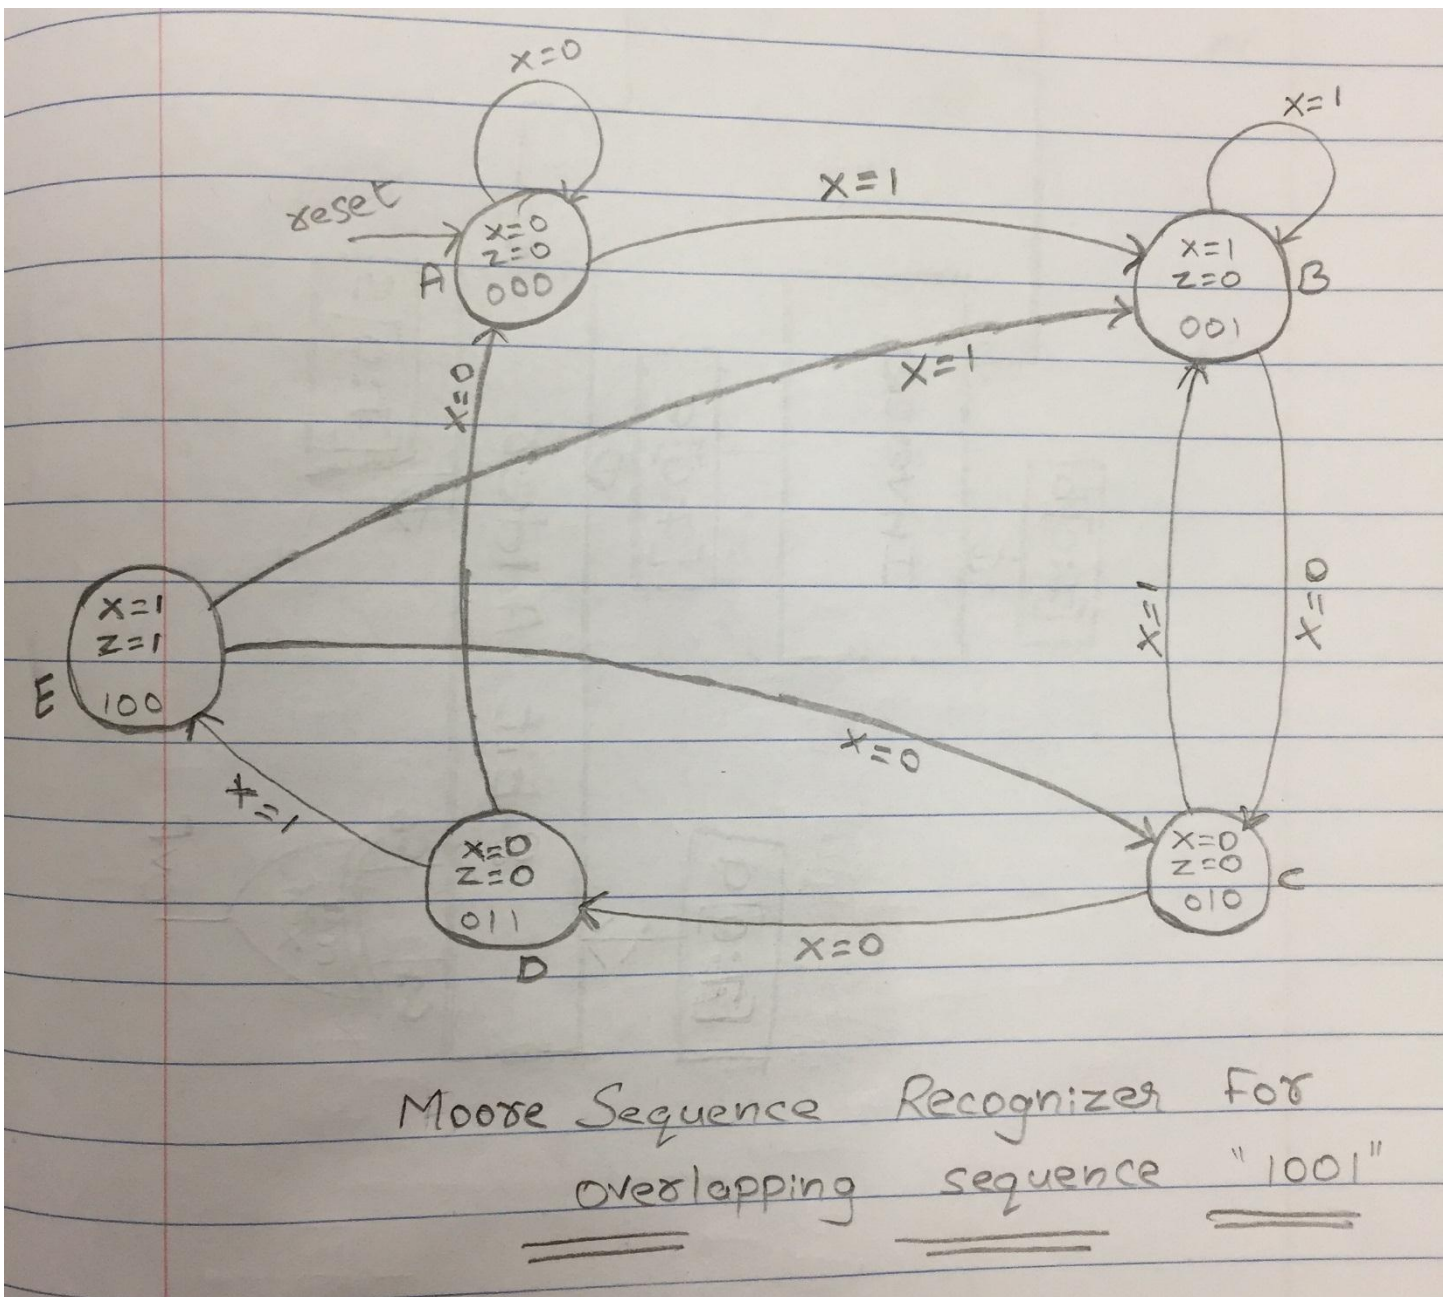 x=0
x=1
reset
x=1
x=0
z=0
000
A
x=1
z=0
001
B
x=0
x=1
x=1
x=0
x=1
z=1
100
E
x=0
x=1
x=0
z=0
011
D
x=0
z=0
010
C
x=0
Moore Sequence Recognizer For
overlapping sequence "1001"